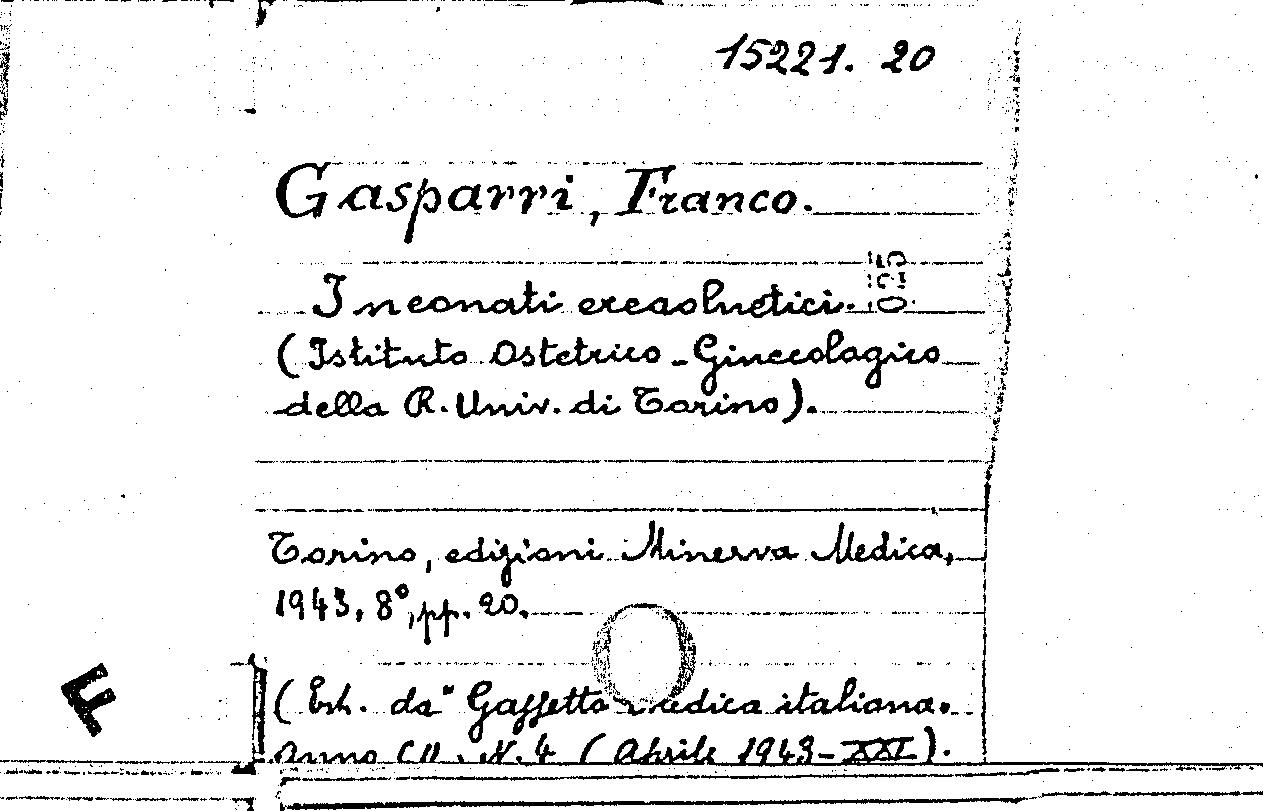 15221. 20
Gasparri, Franco.
I neonati eredoluetici.
025
(Istituto Ostetrico-Ginecologico
della R. Univ. di Torino).
Torino, edizioni Minerva Medica,
1943, 8°, pp. 20.
(Estr. da "Gazzetta Medica italiana.
Anno CII. N. 4 (Aprile 1943-XXI).
F